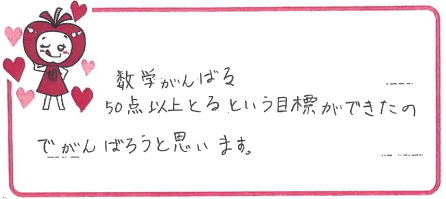 数学がんばる
50点以上とるという目標ができたの
でがんばろうと思います。